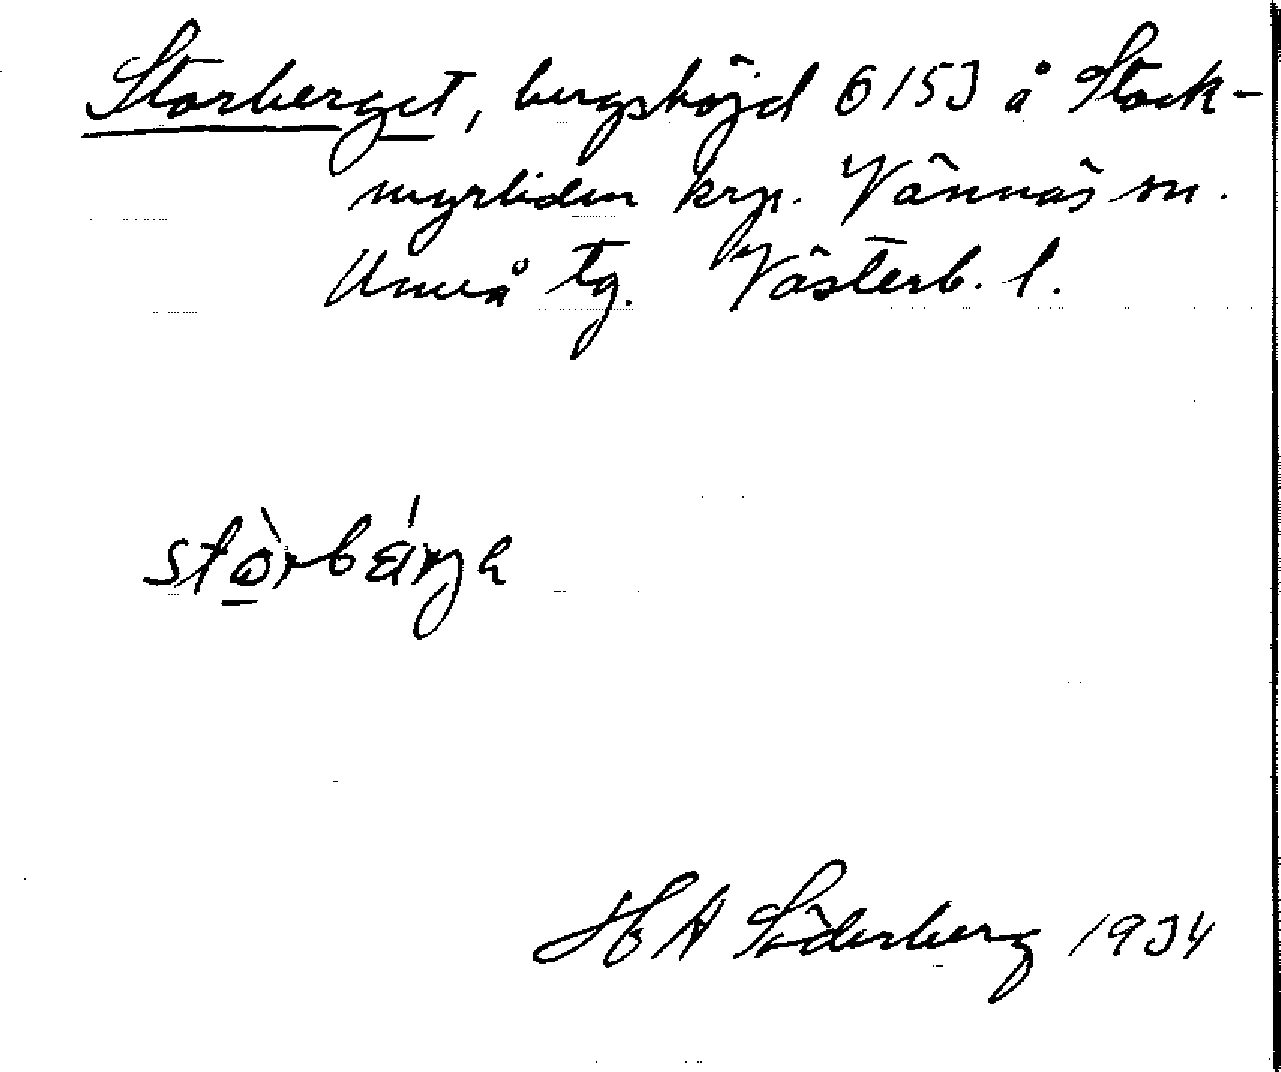 Storberget, bergshöjd 6153 å Stock-
myrliden krp. Vännäs sn.
Umeå tg. Västerb. l.
H A Söderberg 1934